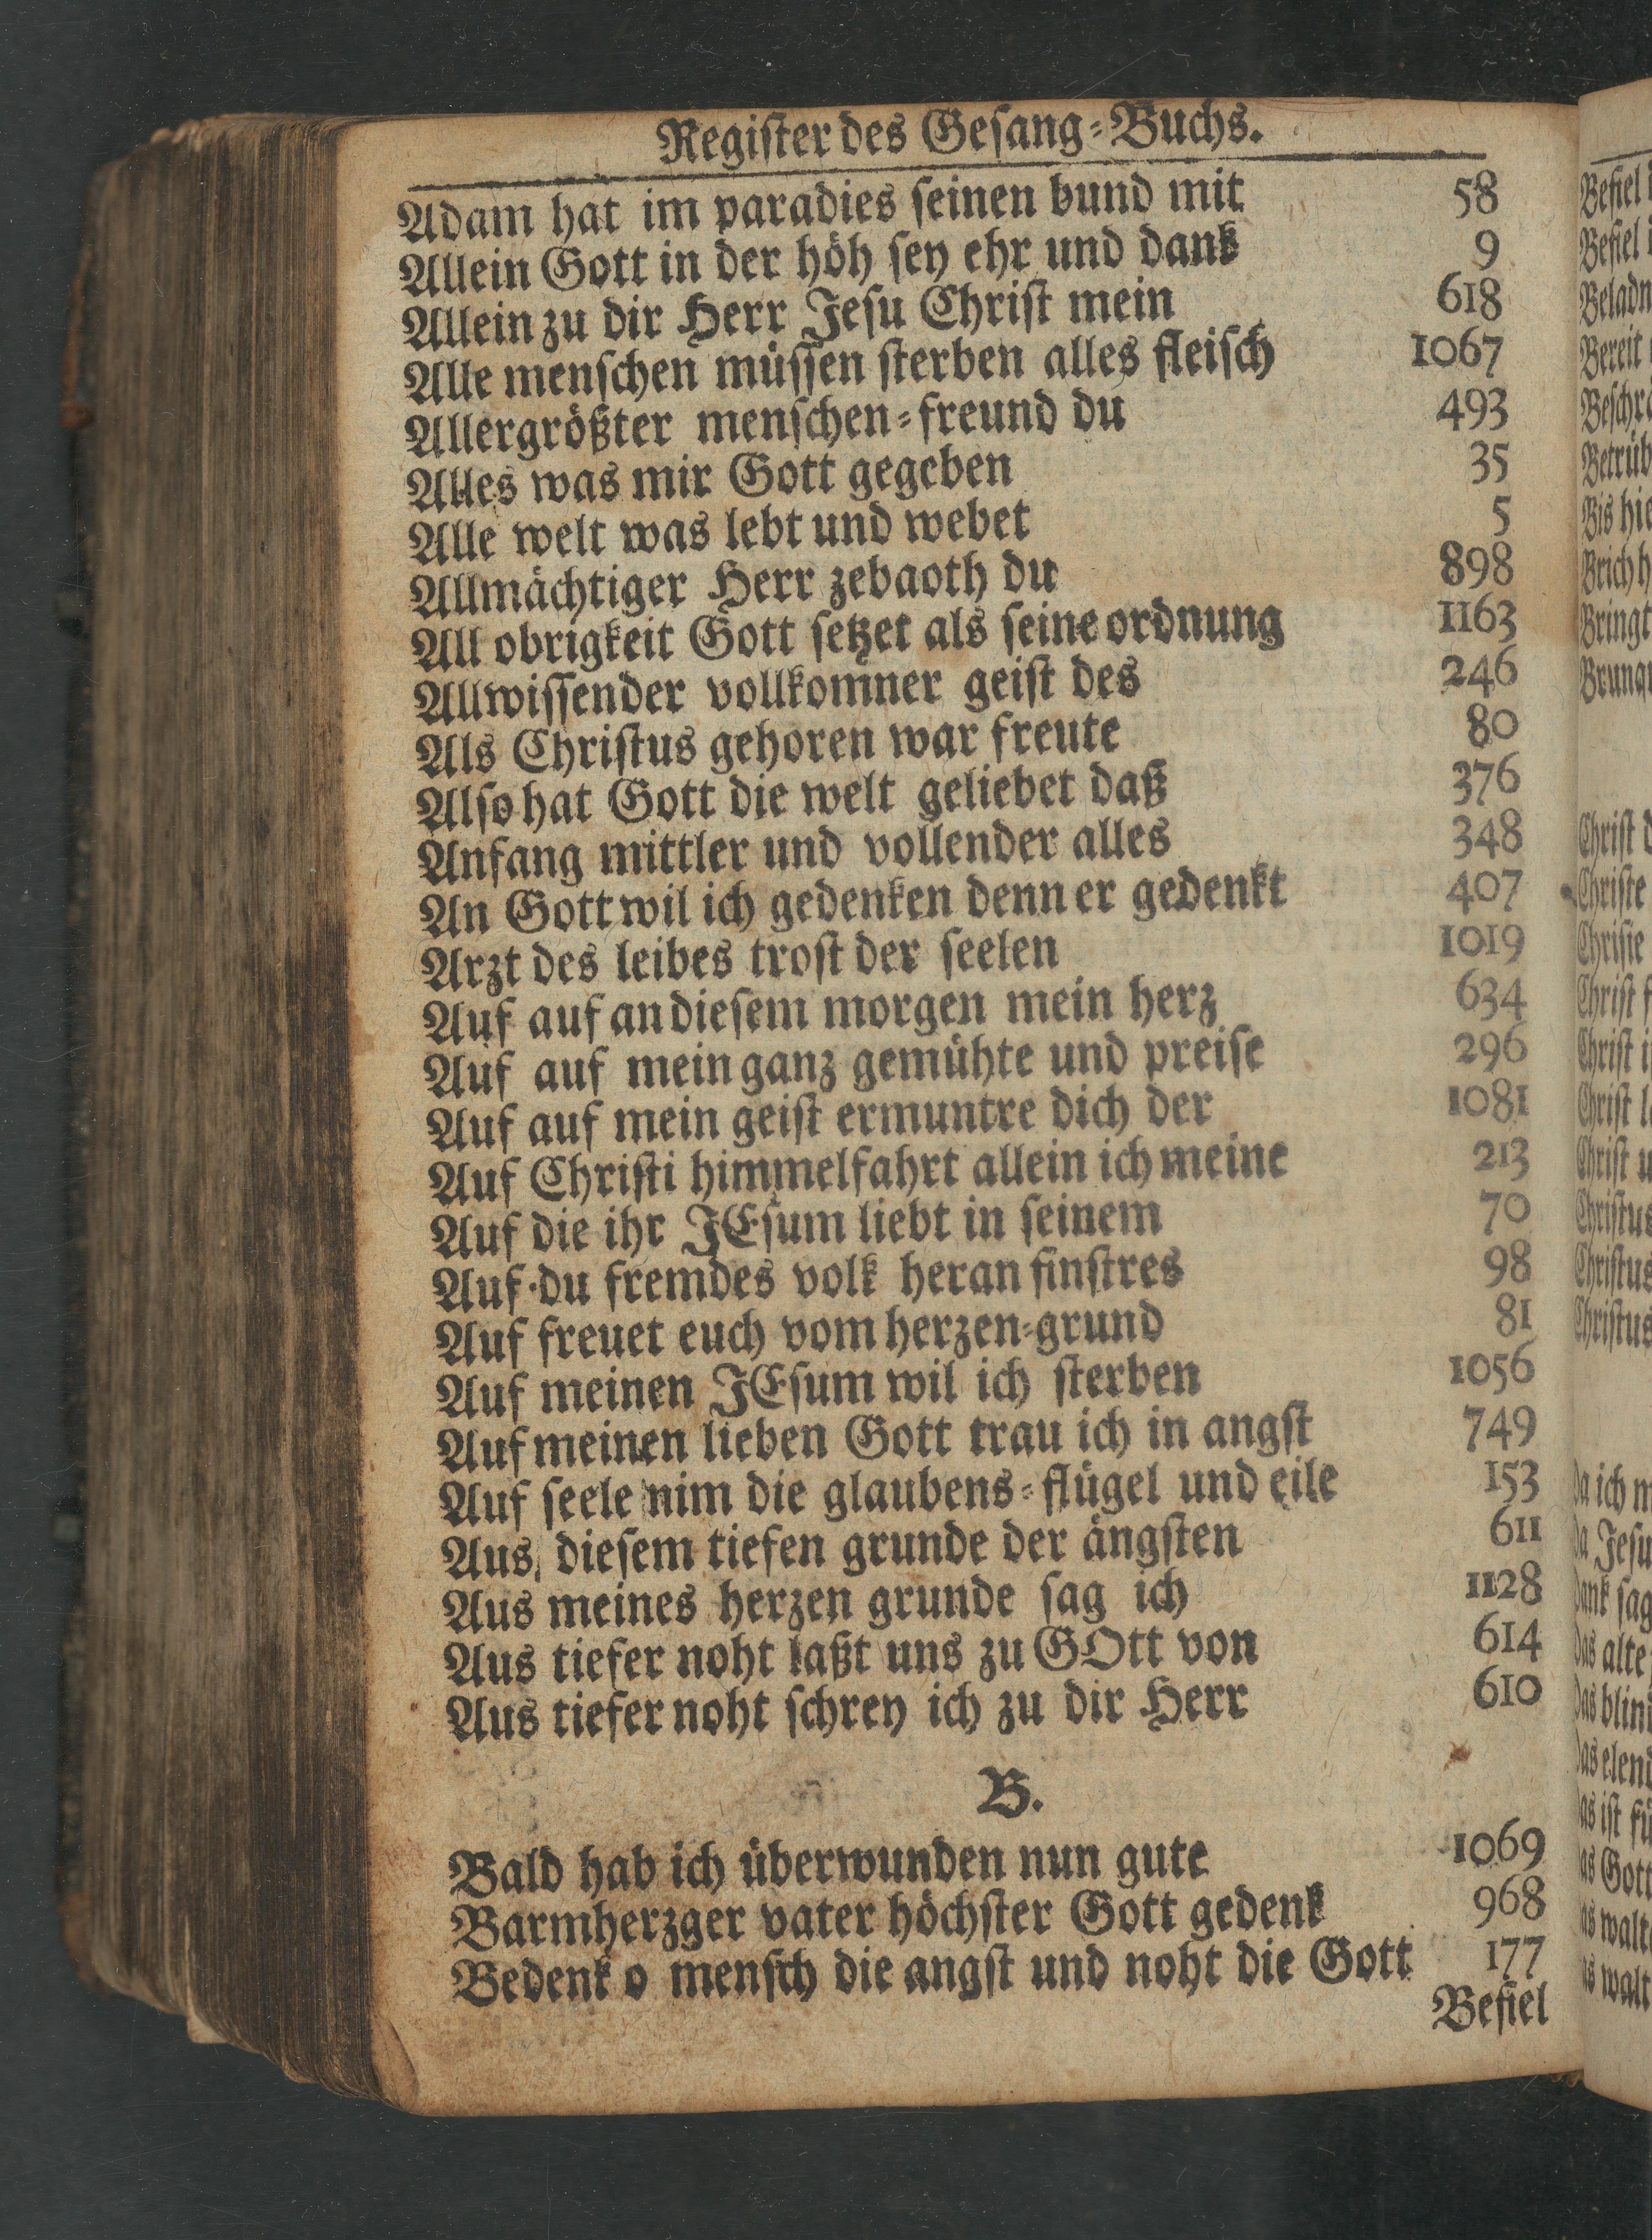 Regiſter des Geſang-Buchs.
Adam hat im paradies ſeinen bund mit 58
Allein Gott in der höh ſey ehr und dank 9
Allein zu dir Herr Jeſu Chriſt mein 618
Alle menſchen müſſen ſterben alles fleiſch 1067
Allergrößter menſchen-freund du 493
Alles was mir Gott gegeben 35
Alle welt was lebt und webet 5
Allmächtiger Herr zebaoth du 898
All obrigkeit Gott ſetzet als ſeine ordnung 1163
Allwiſſender vollkomner geiſt des 246
Als Chriſtus gehoren war freute 80
Alſo hat Gott die welt geliebet daß 376
Anfang mittler und vollender alles 348
An Gott wil ich gedenken denn er gedenkt 407
Arzt des leibes troſt der ſeelen 1019
Auf auf an dieſem morgen mein herz 634
Auf auf mein ganz gemühte und preiſe 296
Auf auf mein geiſt ermuntre dich der 1081
Auf Chriſti himmelfahrt allein ich meine 213
Auf die ihr JEſum liebt in ſeinem 70
Auf du fremdes volk heran finſtres 98
Auf freuet euch vom herzen-grund 81
Auf meinen JEſum wil ich ſterben 1056
Auf meinen lieben Gott trau ich in angſt 749
Auf ſeele nim die glaubens-flügel und eile 153
Aus dieſem tiefen grunde der ängſten 611
Aus meines herzen grunde ſag ich 1128
Aus tiefer noht laßt uns zu GOtt von 614
Aus tiefer noht ſchrey ich zu dir Herr 610
B.
Bald hab ich überwunden nun gute 1069
Barmherzger vater höchſter Gott gedenk 968
Bedenk o menſch die angſt und noht die Gott 177
Befiel
Befiel
Befiel
Bereit
Bis
Chriſt
Chriſte
Chriſte
Chriſt
Chriſt
Chriſt
Chriſt
Chriſtus
Chriſtus
Chriſtus